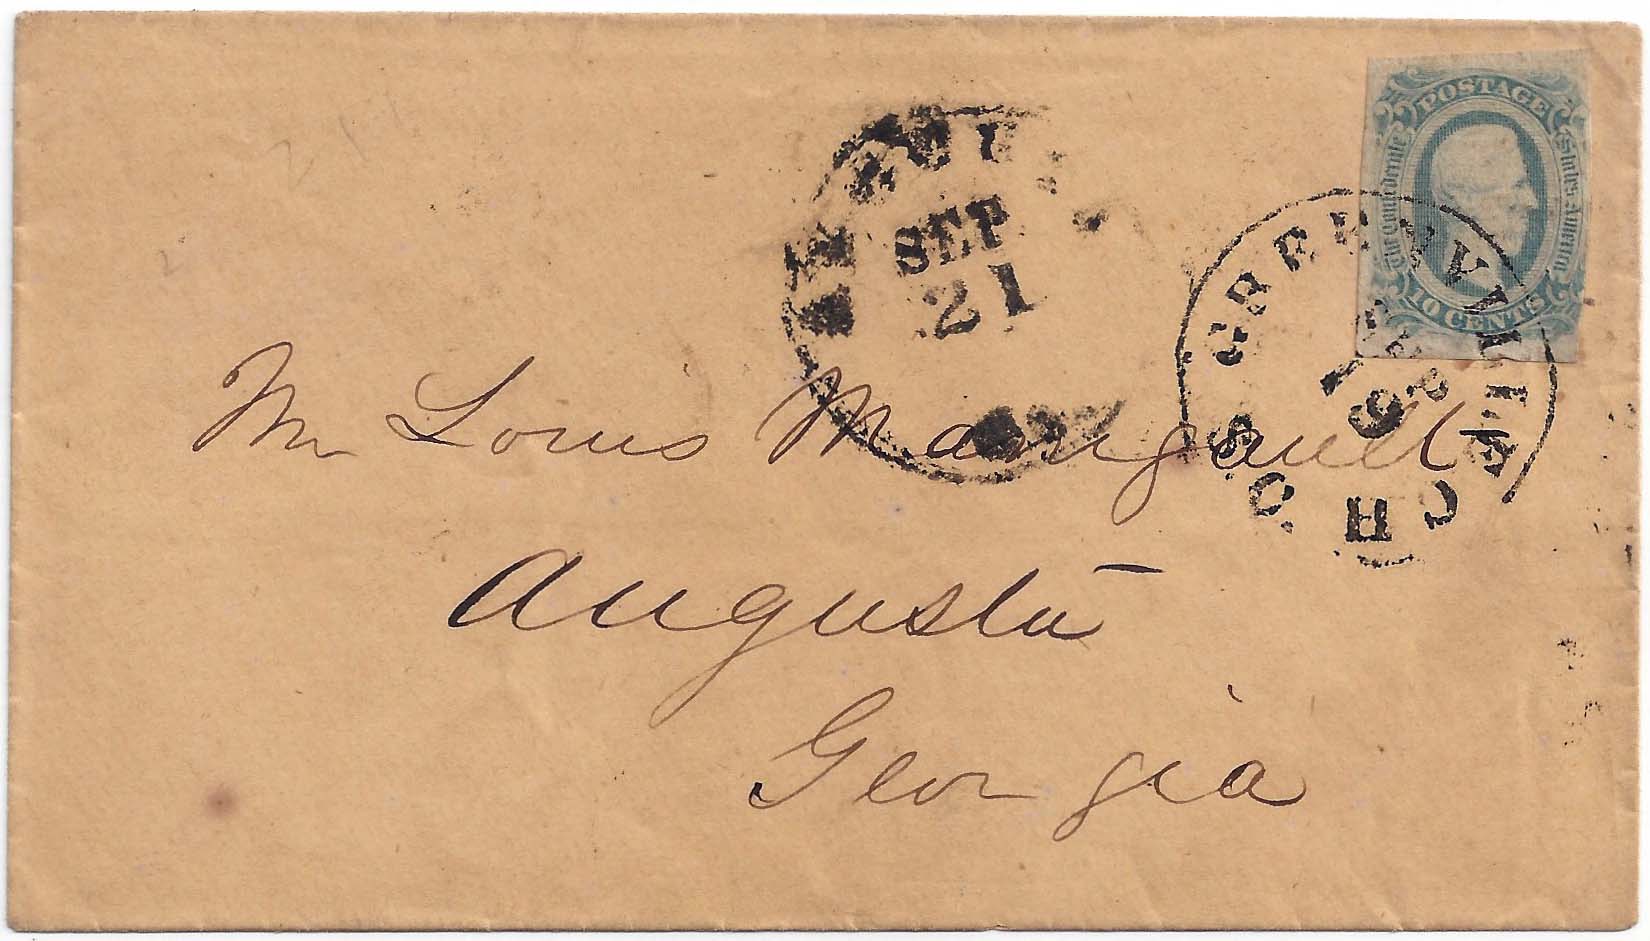 POSTAGE
The Confederate States of America
10 CENTS
GREENVILLE C.H. SO.
SEP
19
SEP
21
Mr Louis Manigault
Augusta
Georgia